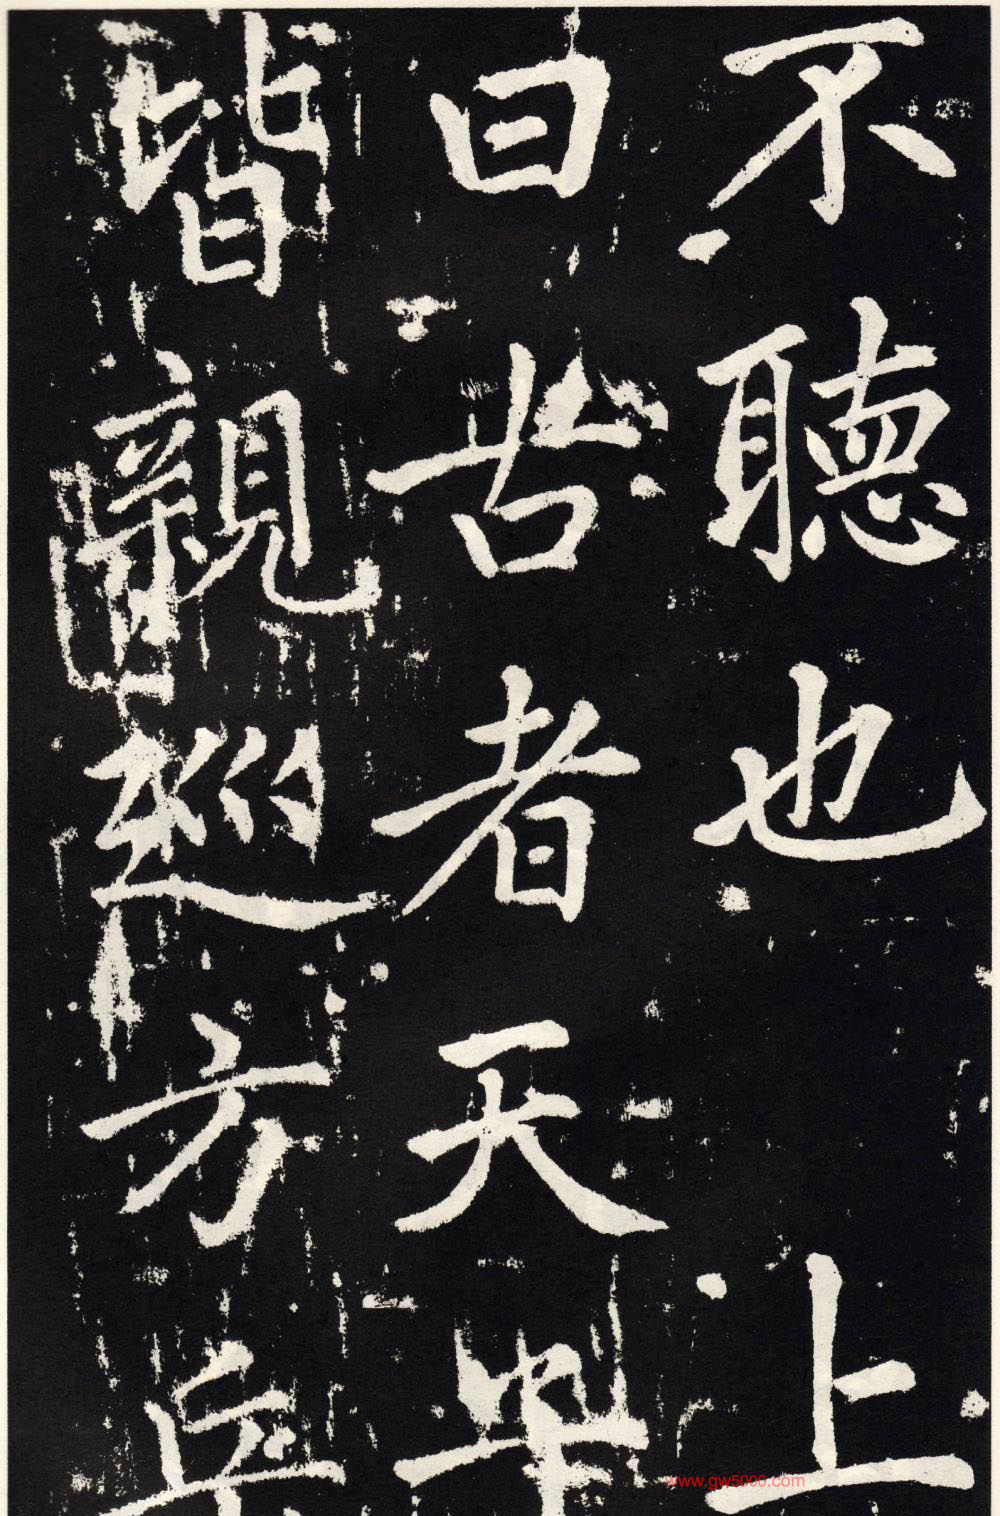 不聽也上
曰古者天
皆親巡方
www.gw5000.com